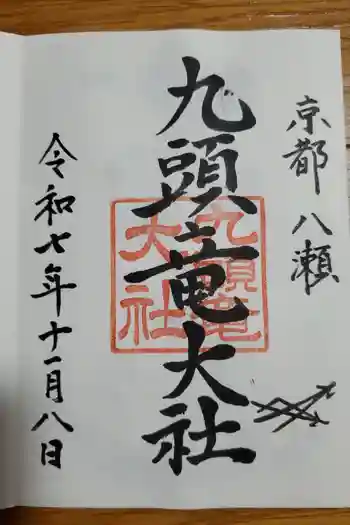 京都八瀬
九頭竜大社
九頭竜
大社
令和七年十一月八日